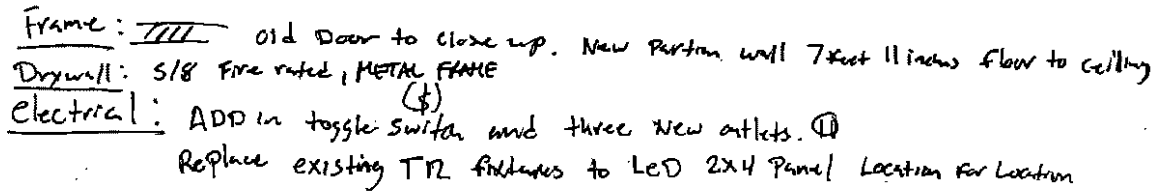 Frame: old Door to close up. New Partion wall 7 feet 11 inches floor to ceiling
Drywall: 5/8 Fire rated, METAL FRAME
electrical: ADD in toggle switch ($) and three New outlets.
Replace existing T12 fixtures to LED 2x4 Panel Location For Location